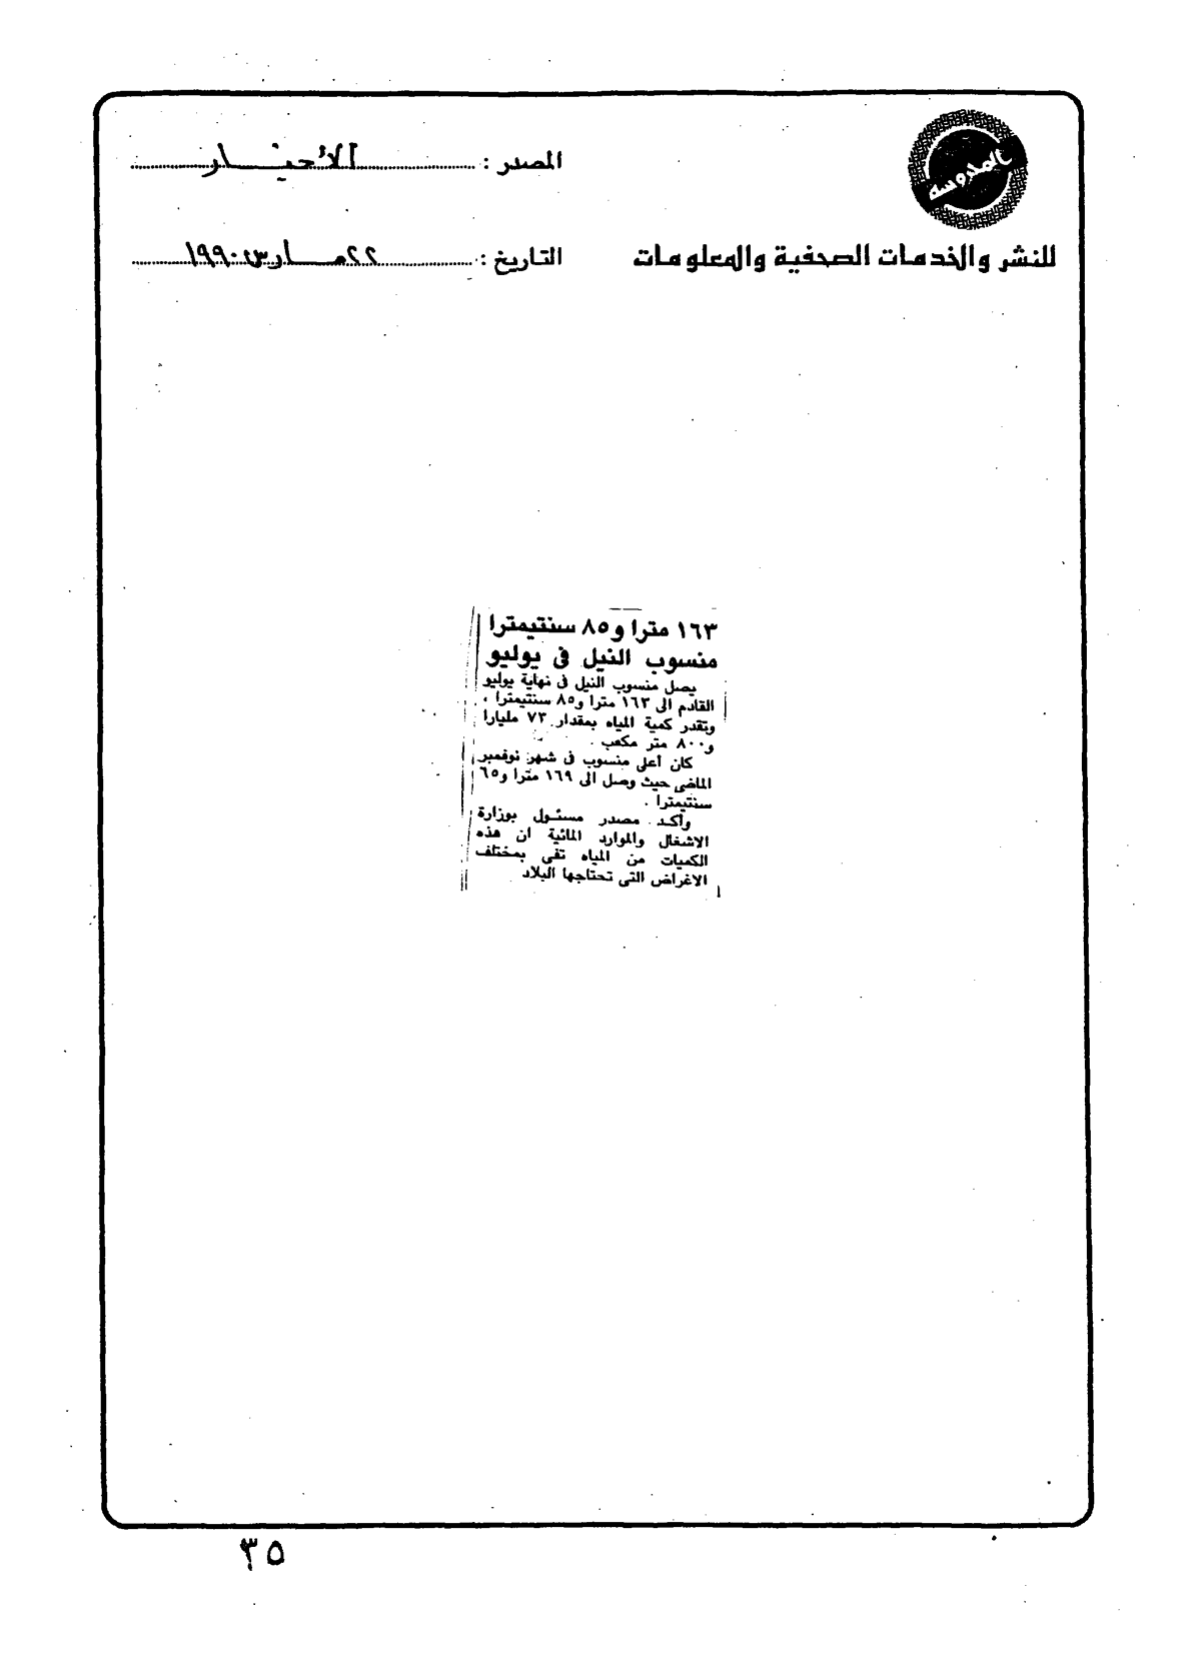 المحروسة
للنشر والخدمات الصحفية والمعلومات
المصدر : الأخبار
التاريخ : ٢٢ مارس ١٩٩٠
١٦٣ مترا و٨٥ سنتيمترا
منسوب النيل فى يوليو
يصل منسوب النيل فى نهاية يوليو
القادم الى ١٦٣ مترا و٨٥ سنتيمترا ،
وتقدر كمية المياه بمقدار ٧٣ مليارا
و٨٠٠ متر مكعب .
كان أعلى منسوب فى شهر نوفمبر
الماضى حيث وصل الى ١٦٩ مترا و٦٥
سنتيمترا .
وأكد مصدر مسئول بوزارة
الاشغال والموارد المائية ان هذه
الكميات من المياه تفى بمختلف
الاغراض التى تحتاجها البلاد
٣٥